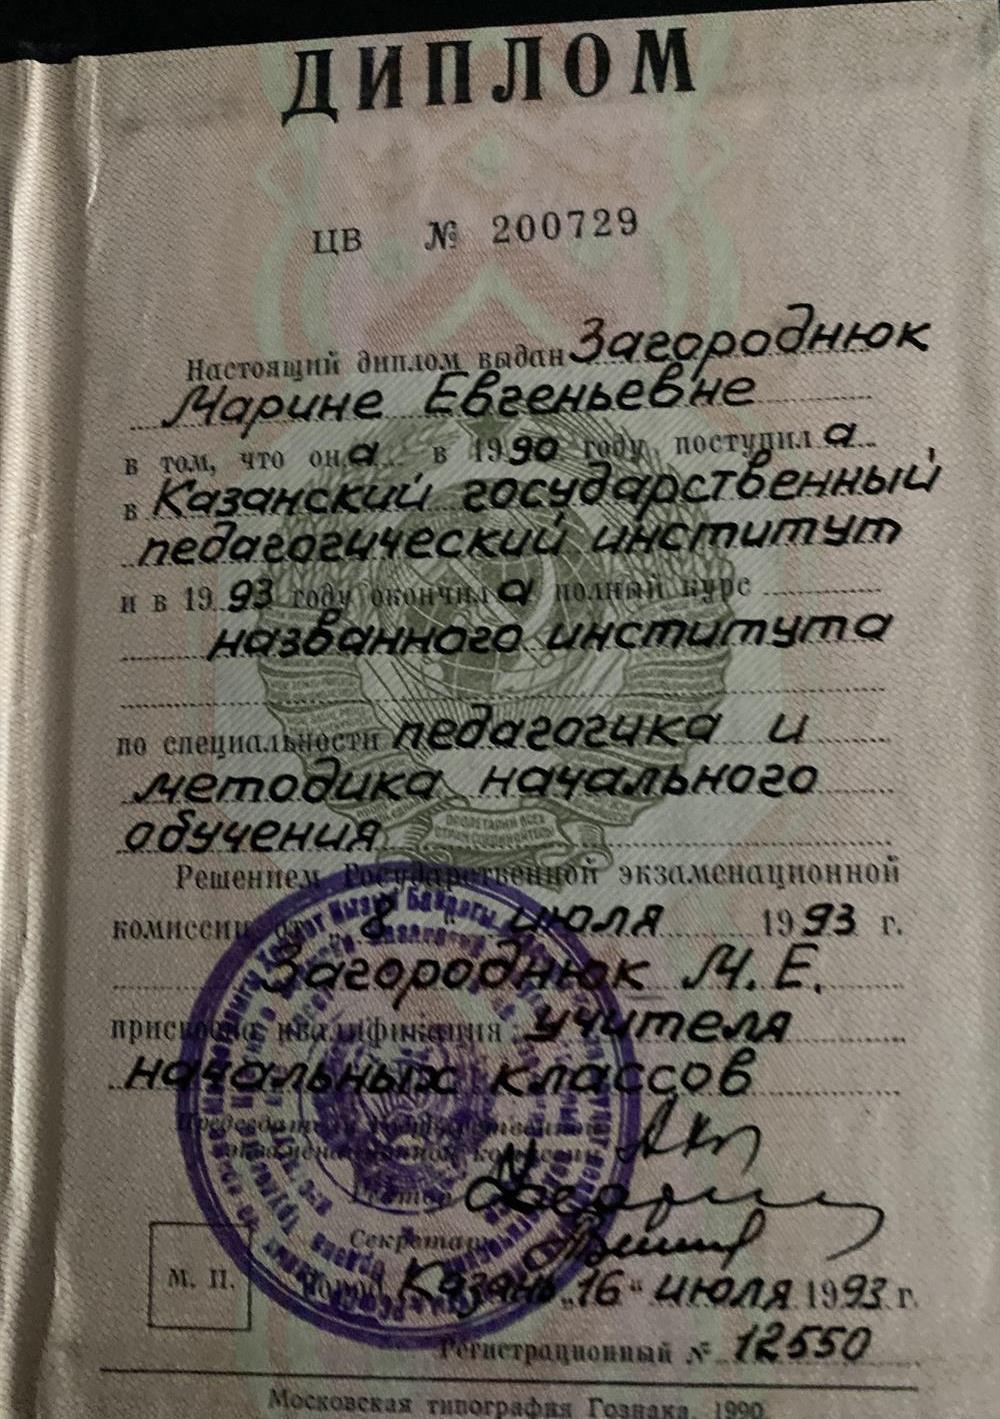 ДИПЛОМ
ЦВ № 200729
Настоящий диплом выдан Загороднюк
Марине Евгеньевне
в том, что она в 1990 году поступила
в Казанский государственный
педагогический институт
и в 1993 году окончила полный курс
названного института
по специальности педагогика и
методика начального
обучения
Решением Государственной экзаменационной
комиссии от 8 июля 1993 г.
Загороднюк М. Е.
присвоена квалификация учителя
начальных классов
Председатель Государственной
экзаменационной комиссии
Ректор
Секретарь
М. П.
Город Казань „16“ июля 1993 г.
Регистрационный № 12550
Московская типография Гознака. 1990.